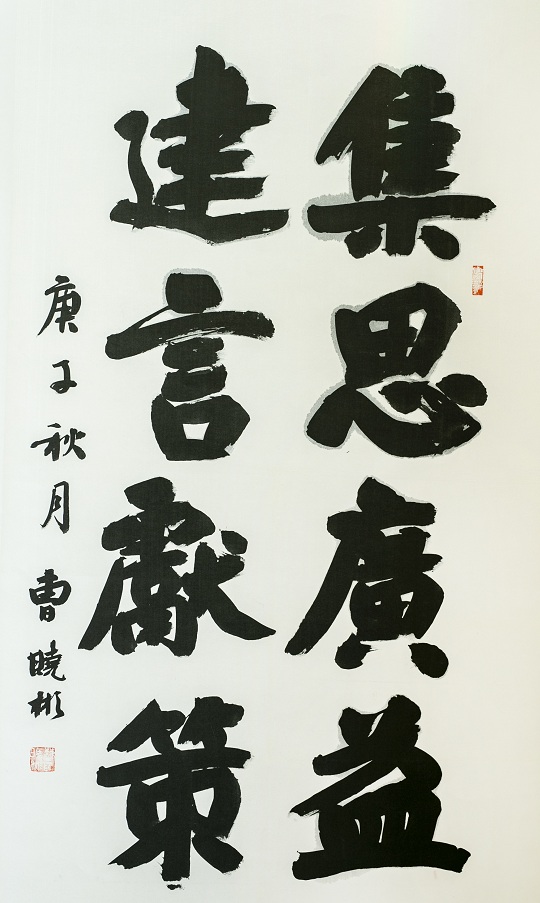 集思廣益
建言獻策
庚子秋月 曹曉彬